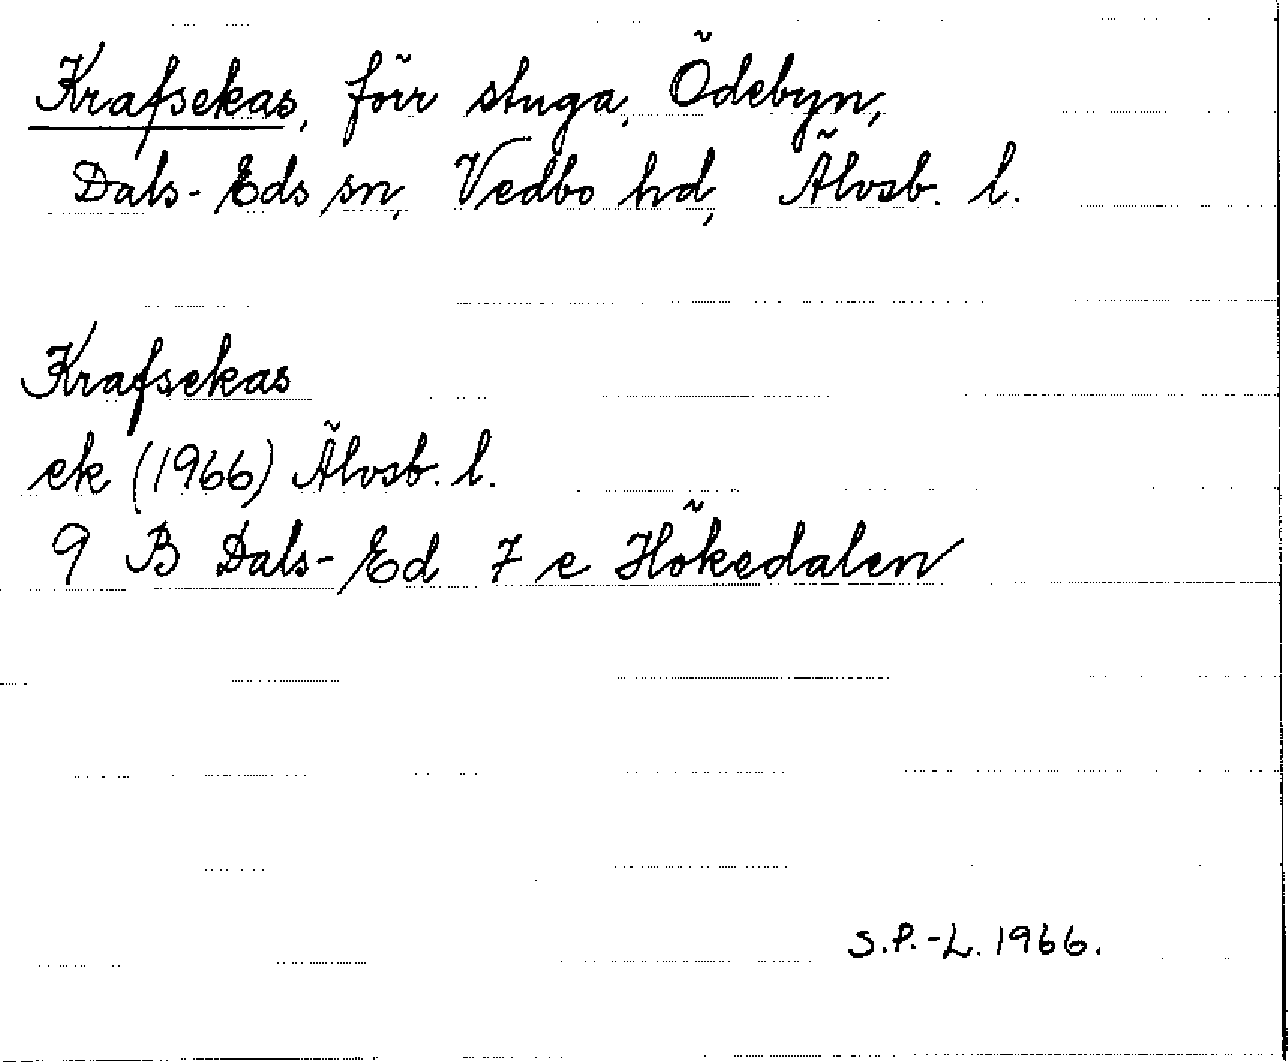 Krafsekas, förr stuga, Ödebyn,
Dals-Eds sn, Vedbo hd, Älvsb. l.
Krafsekas
ek (1966) Älvsb. l.
9 B Dals-Ed 7 e Hökedalen
S.P.-L. 1966.